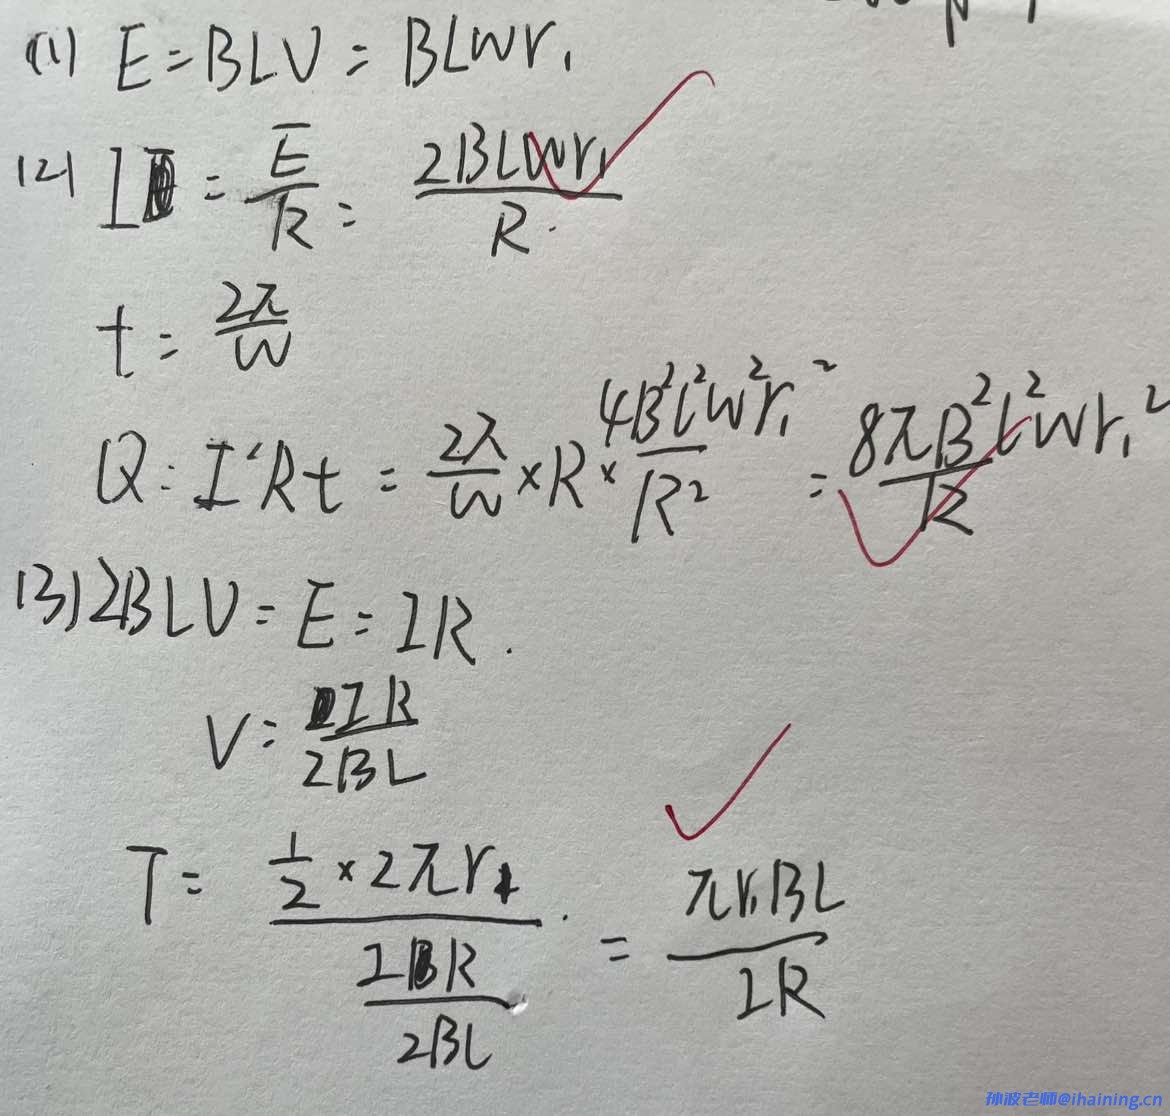 (1) E=BLV=BLWr₁
(2) I=E/R=2BLWr₁/R
t=2π/W
Q=I²Rt=2π/W×R×4B²L²W²r₁²/R²=8πB²L²Wr₁²/R
(3) 2BLV=E=IR.
V=IR/2BL
T=(1/2×2πr₁)/(IR/2BL)=πr₁BL/IR
孙波老师@ihaining.cn